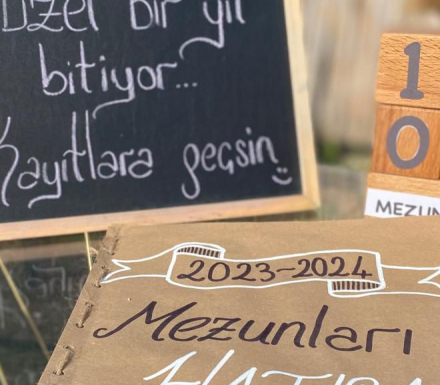 üzel bir yıl
bitiyor...
Kayıtlara geçsin
1
0
MEZUN
2023-2024
Mezunları